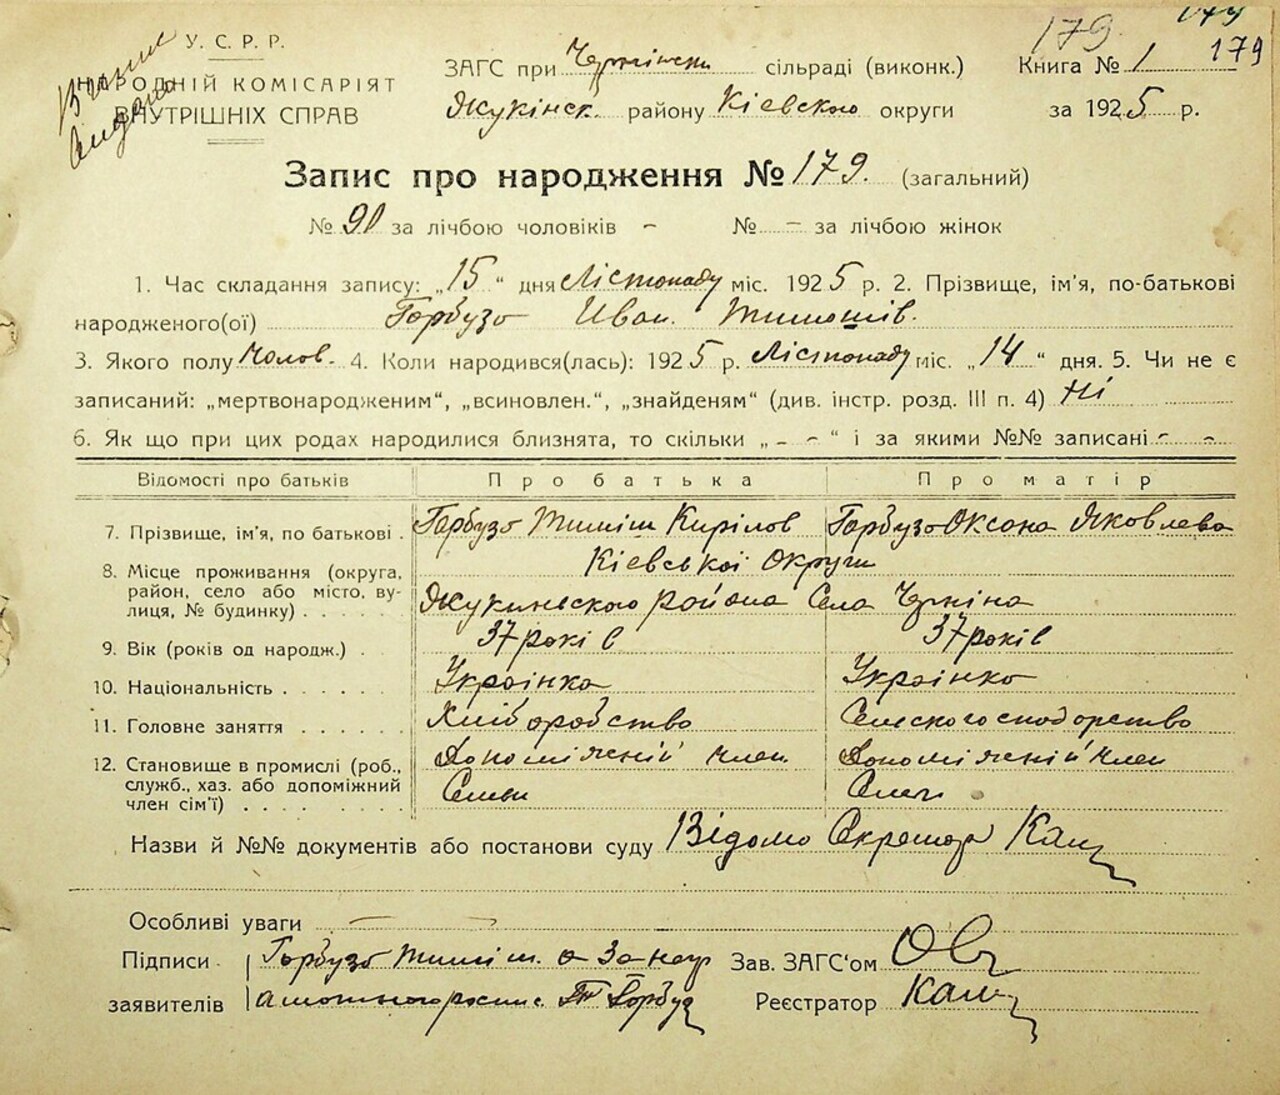 179.
179
У. С. Р. Р.
НАРОДНІЙ КОМІСАРІЯТ
ВНУТРІШНІХ СПРАВ
ЗАГС при Чернінськ сільраді (виконк.) Книга № 1
Жукінск. району Кіевского округи за 1925 р.
Запис про народження № 179. (загальний)
№ 90 за лічбою чоловіків - № - за лічбою жінок
1. Час складання запису: „15“ дня Лістопаду міс. 1925 р. 2. Прізвище, ім'я, по-батькові
народженого(ої) Горбузо Иван. Тимошів.
3. Якого полу Чолов. 4. Коли народився(лась): 1925 р. Лістопаду міс. „14“ дня. 5. Чи не є
записаний: „мертвонародженим“, „всиновлен.“, „знайденям“ (див. інстр. розд. III п. 4) Ні
6. Як що при цих родах народилися близнята, то скільки „ - - “ і за якими №№ записані - -
Відомості про батьків Про батька Про матір
7. Прізвище, ім'я, по батькові . Горбузо Тиміш Кирілов Горбузо Оксана Яковлева
8. Місце проживання (округа, район, село або місто, вулиця, № будинку) . . . . Кіевської Округи
Жукинского района Села Черніна
9. Вік (років од народж.) . 37 років 37 років
10. Національність . . . . . . Украінка Украінко
11. Головне заняття . . . . . . Хліборобство Селскогосподорство
12. Становище в промислі (роб., служб., хаз. або допоміжний член сім'ї) . . . . . . . . Допоміжній член Допоміжній член
Семьи Семьи
Назви й №№ документів або постанови суду Відомо Секретар
Особливі уваги
Підписи Горбузо Тиміш. а За неур
заявителів амотного роспис. Горбуз
Зав. ЗАГС‘ом
Реєстратор